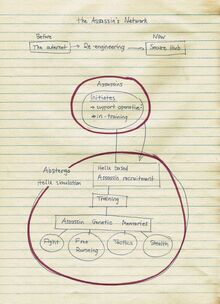 the Assassin's Network
Before
Now
The internet → Re-engineering → Secure Hub
Assassins
Initiates
→ support operative
* in-training
Abstergo
Helix simulation
Helix based
Assassin recruitment
Training
Assassin Genetic Memories
Fight
Free
Running
Tactics
Stealth